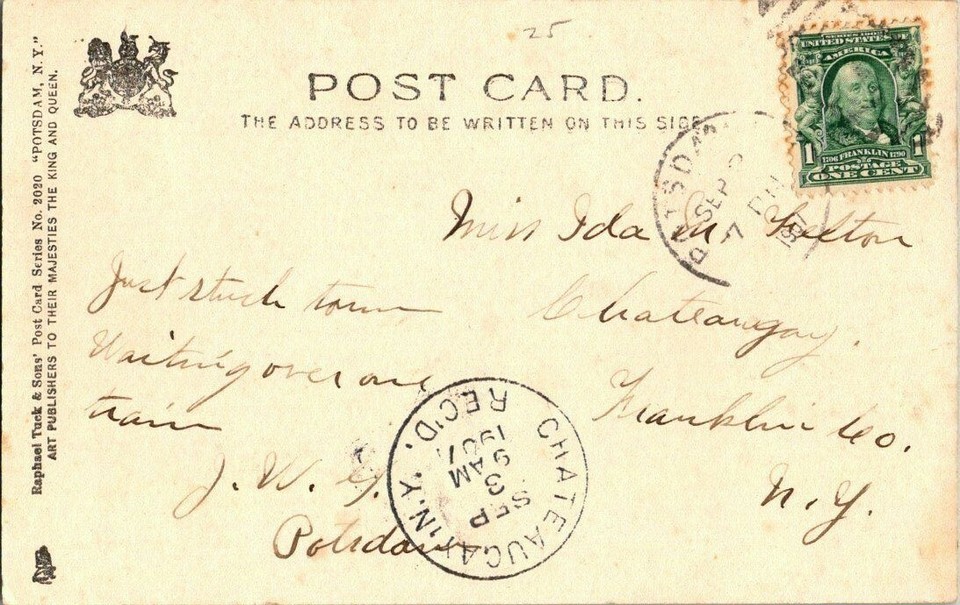 25
POST CARD.
THE ADDRESS TO BE WRITTEN ON THIS SIDE
Raphael Tuck & Sons' Post Card Series No. 2020 "POTSDAM, N. Y."
ART PUBLISHERS TO THEIR MAJESTIES THE KING AND QUEEN.
SERIES 1902
UNITED STATES OF
AMERICA
1706 FRANKLIN 1790
POSTAGE
1 ONE CENT 1
POTSDAM
SEP
7 PM
1907
Miss Ida M.
Chateaugay.
Franklin Co.
N.Y.
Just stuck town
Waiting over one
train
J. W.
Potsdam
CHATEAUGAY N.Y.
SEP
3
9 AM
1907
REC'D.